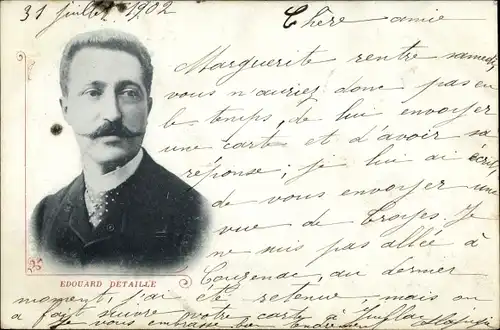 31 juillet 1902
Chère amie
Marguerite rentre samedi,
vous n'auriez donc pas eu
le temps, de lui envoyer
une carte et d'avoir sa
réponse; je lui ai écrit,
de vous envoyer une
vue de Troyes. Je
ne suis pas allée à
au dernier
moment, j'ai été retenue mais on
a fait suivre votre carte à
Je vous embrasse bien tendrement
EDOUARD DETAILLE